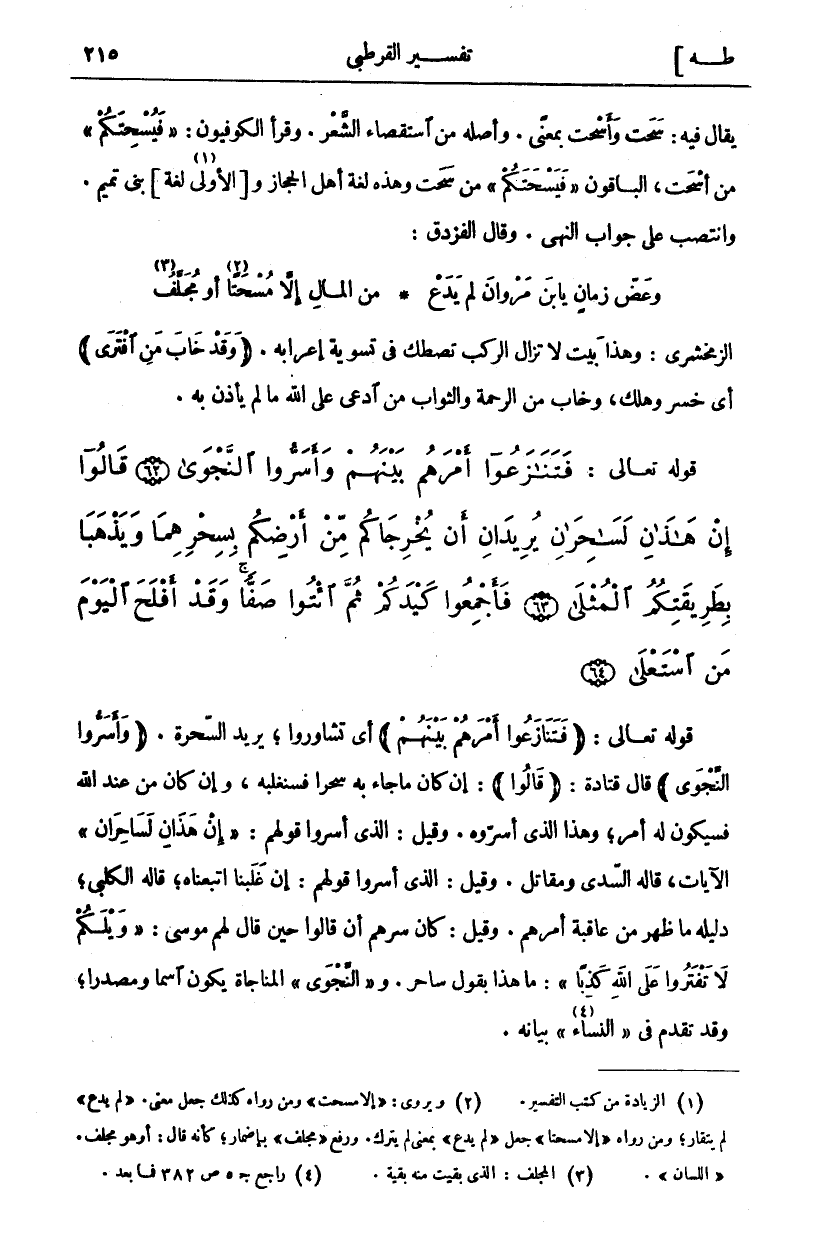 طـــه ] تفســـير القرطبى ٢١٥
يقال فيه : سَحَت وَأَسْحت بمعنًى . وأصله من ٱستقصاء الشَّعْر . وقرأ الكوفيون : « فَيُسْحِتَكُمْ »
من أسْحَت ، البــاقون « فَيَسْحَتَكُمْ » من سَحَت وهذه لغة أهل الحجاز و [ الأولى لغة ](١) بنى تميم .
وانتصب على جواب النهى . وقال الفرزدق :
وعَضّ زمانٍ يابنَ مَرْوانَ لم يَدَعْ * من المـالِ إلَّا مُسْحَتًا(٢) أو مُجَلَّفُ(٣)
الزمخشرى : وهذا بيت لا تزال الركب تصطك فى تسوية إعرابه . ( وَقَدْ خَابَ مَنِ ٱفْتَرَى )
أى خسر وهلك ، وخاب من الرحمة والثواب من ٱدعى على الله ما لم يأذن به .
قوله تعـالى : فَتَنَـٰزَعُوٓا أَمْرَهُم بَيْنَهُـمْ وَأَسَرُّوا ٱلنَّجْوَىٰ ٦٢ قَالُوٓا
إِنْ هَـٰذَٰنِ لَسَـٰحِرَٰنِ يُرِيدَانِ أَن يُخْرِجَاكُم مِّنْ أَرْضِكُم بِسِحْرِهِمَا وَيَذْهَبَا
بِطَرِيقَتِكُمُ ٱلْمُثْلَىٰ ٦٣ فَأَجْمِعُوا كَيْدَكُمْ ثُمَّ ٱئْتُوا صَفًّا ۚ وَقَـدْ أَفْلَحَ ٱلْيَوْمَ
مَنِ ٱسْتَعْلَىٰ ٦٤
قوله تعـالى : ( فَتَنَازَعُوا أَمْرَهُمْ بَيْنَهُـمْ ) أى تشاوروا ؛ يريد السّحرة . ( وَأَسَرُّوا
النَّجْوَى ) قال قتادة : ( قَالُوا ) : إن كان ماجاء به سحرا فسنغلبه ، وإن كان من عند الله
فسيكون له أمر ؛ وهذا الذى أسرّوه . وقيل : الذى أسروا قولهم : « إِنْ هَذَانِ لَسَاحِرَانِ »
الآيات ، قاله السّدى ومقاتل . وقيل : الذى أسروا قولهم : إن غَلَبنا اتبعناه ؛ قاله الكلبى ؛
دليله ما ظهر من عاقبة أمرهم . وقيل : كان سرهم أن قالوا حين قال لهم موسى : « وَيْلَـكُمْ
لَا تَفْتَرُوا عَلَى اللهِ كَذِبًا » : ما هذا بقول ساحر . و « النَّجْوَى » المناجاة يكون ٱسما ومصدرا ؛
وقد تقدم فى « النساء »(٤) بيانه .
(١) الزيادة من كتب التفسير . (٢) ويروى : « إلا مسحت » ومن رواه كذلك جعل معنى . « لم يدع »
لم يتقار ؛ ومن رواه « إلا مسحتا » جعل « لم يدع » بمعنى لم يترك . ورفع « مجلف » بإضمار ؛ كأنه قال : أو هو مجلف .
« اللسان » . (٣) المجلف : الذى بقيت منه بقية . (٤) راجع جـ ٥ ص ٣٨٢ فـا بعد .